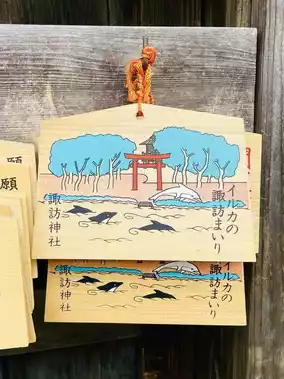 イルカの
諏訪まいり
諏訪神社
イルカの
諏訪まいり
諏訪神社
願
願